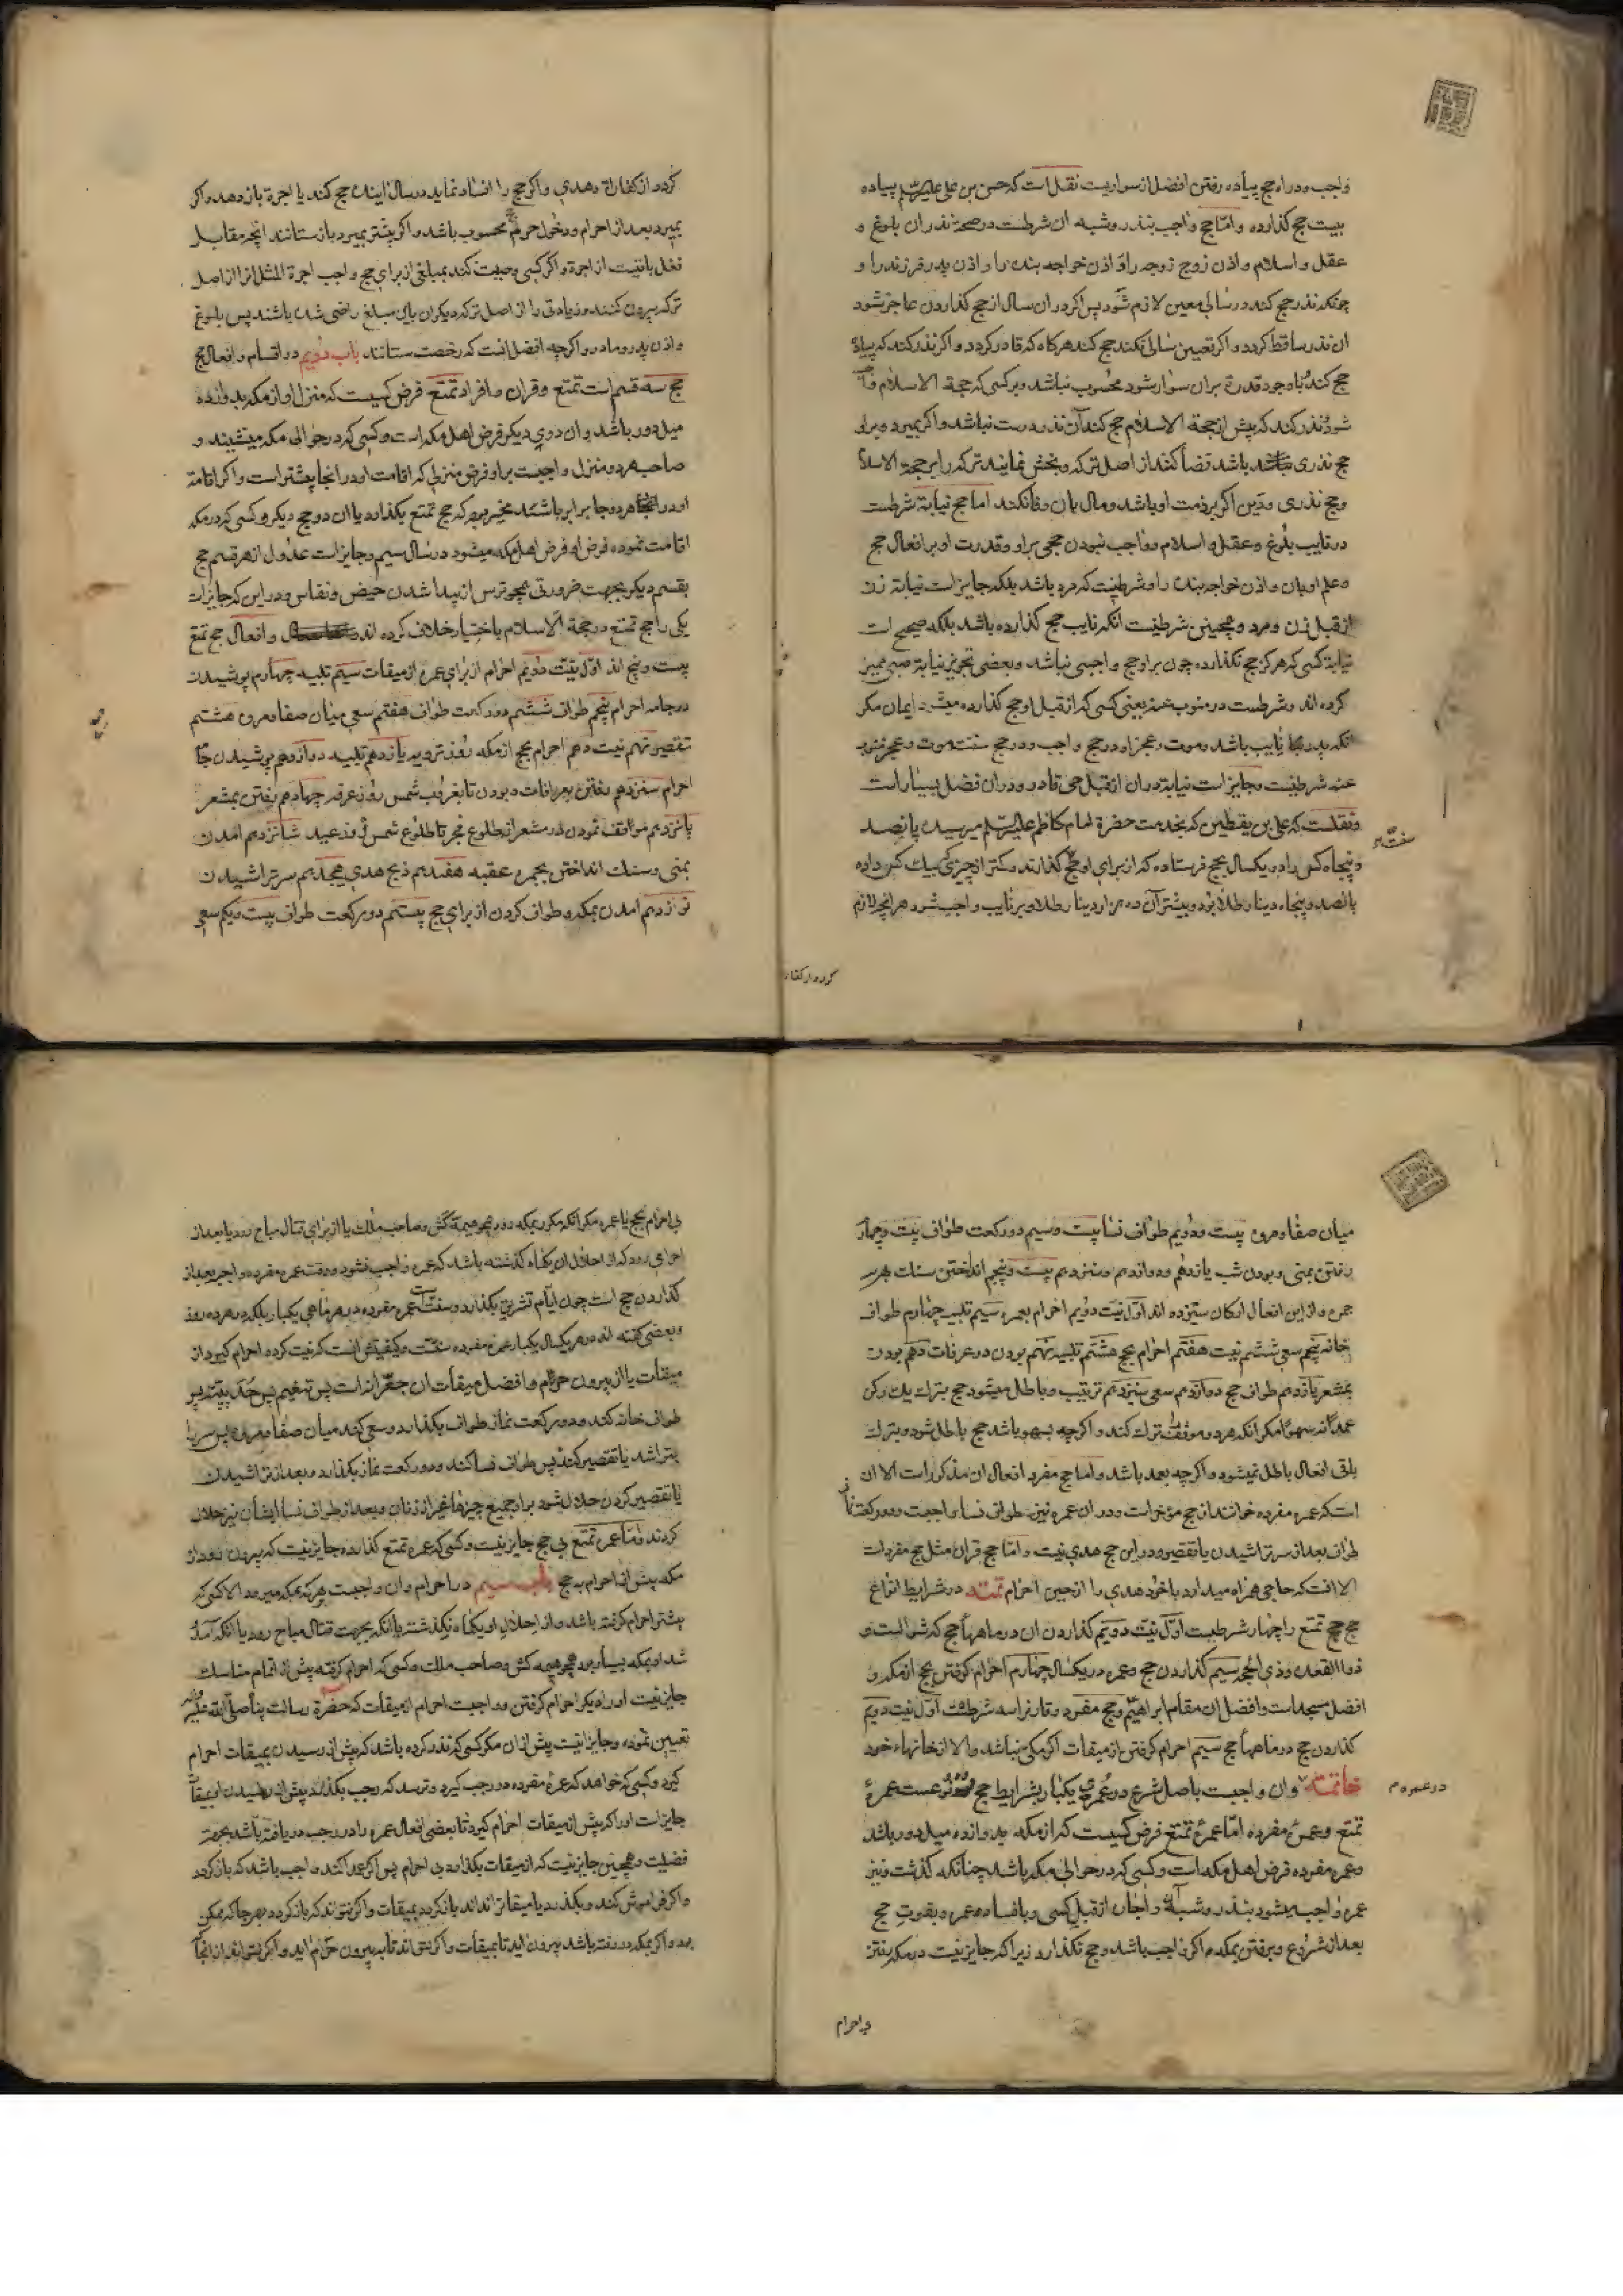 واجب و در راه حج پیاده رفتن افضل از سواریست نقل است که حسن بن علی علیهما السلم پیاده
بیست حج گذارده و امّا حج واجب بنذر و شبه آن شرطست در صحة نذر آن بلوغ و
عقل و اسلام و اذن زوج زوجه را و اذن خواجه بنده را و اذن پدر فرزند را و
چونکه نذر حج کند در سالی معین لازم شود پس اگر در آن سال از حج گذاردن عاجز شود
ان نذر ساقط گردد و اگر تعیین سالی نکند حج کند هرگاه که قادر گردد و اگر نذر کند که پیاده
حج کند باوجود قدرة بران سوار شود محسوب نباشد و بر کسی که حجة الاسلام واجب
شود نذر کند که پیش از حجة الاسلام حج کند آن نذر درست نباشد و اگر بمیرد و براو
حج نذری باشد قضا کنند از اصل ترکه و بخش نمایند ترکه را بر حجة الاسلام
و حج نذری و دین اگر بر ذمت او باشد و مال بان وفا نکند اما حج نیابة شرطست
در نایب بلوغ و عقل و اسلام و واجب نبودن حجی براو و قدرت او بر افعال حج
و علم او بان و اذن خواجه بنده را و شرط نیست که مرد باشد بلکه جایز است نیابة زن
از قبل زن و مرد و همچنین شرط نیست انکه نایب حج گذارده باشد بلکه صحیح است
نیابة کسی که هرگز حج نگذارده چون براو حج واجبی نباشد و بعضی تجویز نیابة صبی ممیز
کرده اند و شرطست در منوب عنه یعنی کسی که از قبل او حج گذارده میشود ایمان مگر
انکه پدر نایب باشد و موت و عجز او در حج واجب و در حج سنت موت و عجز منوب
عنه شرط نیست و جایز است نیابة در ان از قبل حی قادر و در ان فضل بسیار است
و نقلست که علی بن یقطین که بخدمت حضرة امام کاظم علیه السلم میرسید پانصد
و پنجاه کس را در یکسال بحج فرستاده که از برای او حج گذارند و کمتر از چیزی که بیک کس داده
پانصد و پنجاه دینار طلا بود و بیشتر آن ده هزار دینار طلا و بر نایب واجب شود هر انچه لازم
سنت
گردد از کفار
گردد از کفارة و هدی و اگر حج را افساد نماید در سال اینده حج کند یا اجرة باز دهد و اگر
بمیرد بعد از احرام و دخول حرم محسوب باشد و اگر پیشتر بمیرد باز ستانند انچه مقابل
فعل باقیست از اجرة و اگر کسی وصیت کند بمبلغی از برای حج واجب اجرة المثل انرا از اصل
ترکه بیرون کنند و زیادتی را از اصل ترکه دیگران باین مبلغ راضی شده باشند پس بلوغ
و اذن پدر و مادر و اگرچه افضل انست که رخصت ستانند باب دویم در اقسام و افعال حج
حج سه قسم است تمتع و قران و افراد تمتع فرض کسیست که منزل او از مکه بدوازده
میل دور باشد و ان دوی دیگر فرض اهل مکه است و کسی که در حوالی مکه میشیند و
صاحب دو منزل واجبست براو فرض منزلی که اقامت او در انجا بیشتر است و اگر اقامة
او در هر دو جا برابر باشد مخیر بود که حج تمتع بگذارد یا ان دو حج دیگر و کسی که در مکه
اقامت نموده فرض او فرض اهل مکه میشود در سال سیم و جایز است عدول از هر قسم حج
بقسم دیگر بجهت ضرورتی همچو ترس از پیدا شدن حیض و نفاس و در این که جایز است
یکی را حج تمتع در حجة الاسلام باختیار خلاف کرده اند و افعال حج تمتع
بیست و پنج اند اوّل نیّت دویم احرام از برای عمره از میقات سیّم تلبیه چهارم پوشیدن
دو جامه احرام پنجم طواف ششم دو رکعت طواف هفتم سعی میان صفا و مروه هشتم
تقصیر نهم نیت دهم احرام بحج از مکه روز ترویه یازدهم تلبیه دوازدهم پوشیدن جا
احرام سیزدهم رفتن بعرفات و بودن تا بغروب شمس روز عرفه چهاردهم رفتن بمشعر
پانزدهم موافقت نمودن در مشعر از طلوع فجر تا طلوع شمس روز عید شانزدهم امدن
بمنی و سنک انداختن بجمره عقبه هفدهم ذبح هدی هیجدهم سر تراشیدن
نوازدهم امدن بمکه و طواف کردن از برای حج بیستم دو رکعت طواف بیست و یکم سعی
میان صفا و مروه بیست و دویم طواف نسا بیست و سیم دو رکعت طواف بیست و چهارم
رفتن بمنی و بودن شب یازدهم و دوازدهم و سیزدهم بیست و پنجم انداختن سنک بهر سه
جمره و از این افعال ارکان سیزده اند اوّل نیت دویم احرام بعمره سیم تلبیه چهارم طواف
خانه پنجم سعی ششم نیت هفتم احرام بحج هشتم تلبیه نهم بودن در عرفات دهم بودن
بمشعر یازدهم طواف حج دوازدهم سعی سیزدهم ترتیب و باطل میشود حج بترک یک رکن
عمداً نه سهواً مگر انکه هر دو موقف ترک کند و اگرچه بسهو باشد حج باطل شود و بترک
باقی افعال باطل نمیشود و اگرچه بعمد باشد و اما حج مفرد افعال ان مذکور است الا ان
است که عمره مفرده خوانند از حج مؤخر است و در ان عمره نیز طواف نسا واجبست و دو رکعت نماز
طواف بعد از سر تراشیدن یا تقصیر و در این حج هدی نیست و امّا حج قران مثل حج مفرد است
الا انست که حاجی همراه میدارد با خود هدی را از حین احرام تمتمه در شرایط انواع
حج حج تمتع را چهار شرطست اوّل نیّت دویم گذاردن ان در ماهها حج که شوالست و
ذوالقعده و ذی الحجه سیم گذاردن حج و عمره در یکسال چهارم احرام گرفتن بحج از مکه و
افضل مسجد است و افضل ان مقام ابراهیم و حج مفرد و قارن را سه شرطست اوّل نیت دویم
گذاردن حج در ماهها حج سیم احرام گرفتن از میقات اگر مکی نباشد والا از خانهاء خود
خاتمه و ان واجبست باصل شرع در عمری یکبار بشرایط حج و دو نوعست عمرة
در عمره م
تمتع و عمرة مفرده امّا عمرة تمتع فرض کسیست که از مکه بدوازده میل دور باشد
و عمره مفرده فرض اهل مکه است و کسی که در حوالی مکه باشد چنانکه گذشت و نیز
عمره واجب میشود بنذر و شبه آن و اجاره از قبل کسی و بافساد عمره و بفوت حج
بعد از شروع و برفتن بمکه اگر واجب باشد و حج نگذارد زیرا که جایز نیست در مکه رفتن
بی احرام
بی احرام بحج یا عمره مگر انکه مکرر بمکه رود همچو هیمه کش و صاحب ملک یا از برای قتال مباح رود یا بعد از
احرامی رود که از احلال ان یکماه گذشته باشد که عمره واجب نشود و وقت عمره مفرده واجبه بعد از
گذاردن حج است چون ایّام تشریق بگذارد و سنتست عمره مفرده در هر ماهی یکبار بلکه در هر ده روز
و بعضی گفته اند در هر یکسال یکبار عمره مفرده سنت و کیفیتش انست که نیت کرده احرام گیرد از
میقات یا از بیرون حرم و افضل میقات ان جعرّانه است پس تنعیم پس حدیبیّه پس
طواف خانه کند و دو رکعت نماز طواف بگذارد و سعی کند میان صفا و مروه پس سر را
بتراشد یا تقصیر کند پس طواف نسا کند و دو رکعت نماز بگذارد و بعد از تراشیدن
یا تقصیر کردن حلال شود براو جمیع چیزها غیر از زنان و بعد از طواف نسا ایشان نیز حلال
گردند و امّا عمره تمتع بی حج جایز نیست و کسی که عمره تمتع گذارده جایز نیست که بیرون رود از
مکه پیش از احرام بحج باب سیم در احرام و ان واجبست بر هرکه بمکه میرود الا کسی که
پیشتر احرام گرفته باشد و از احلال او یکماه نگذشته یا انکه بجهت قتال مباح رود یا انکه آمد
شد او بمکه بسیار بود همچو هیمه کش و صاحب ملک و کسی که احرام گرفته پیش از اتمام مناسک
جایز نیست او را دیگر احرام گرفتن و واجبست احرام از میقات که حضرة رسالت پناه صلّی الله علیه و اله
تعیین نموده و جایز نیست پیش از ان مگر کسی که نذر کرده باشد که پیش از رسیدن بمیقات احرام
گیرد و کسی که خواهد که عمرة مفرده در رجب گیرد و ترسد که رجب بگذرد پیش از رسیدن او بمیقات
جایز است او را که پیش از میقات احرام گیرد تا بعضی افعال عمره را در رجب دریافته باشد بجهة
فضیلت و همچنین جایز نیست که از میقات بگذرد بی احرام پس اگر عمدا کند واجب باشد که باز گردد
و اگر فراموش کند و بگذرد یا میقات را نداند باز گردد بمیقات و اگر نتواند که باز گردد هر جا که ممکن
بود و اگر بمکه در رفته باشد بیرون اید تا بمیقات و اگر نتواند تا به بیرون حرم اید و اگر نتواند از انجا